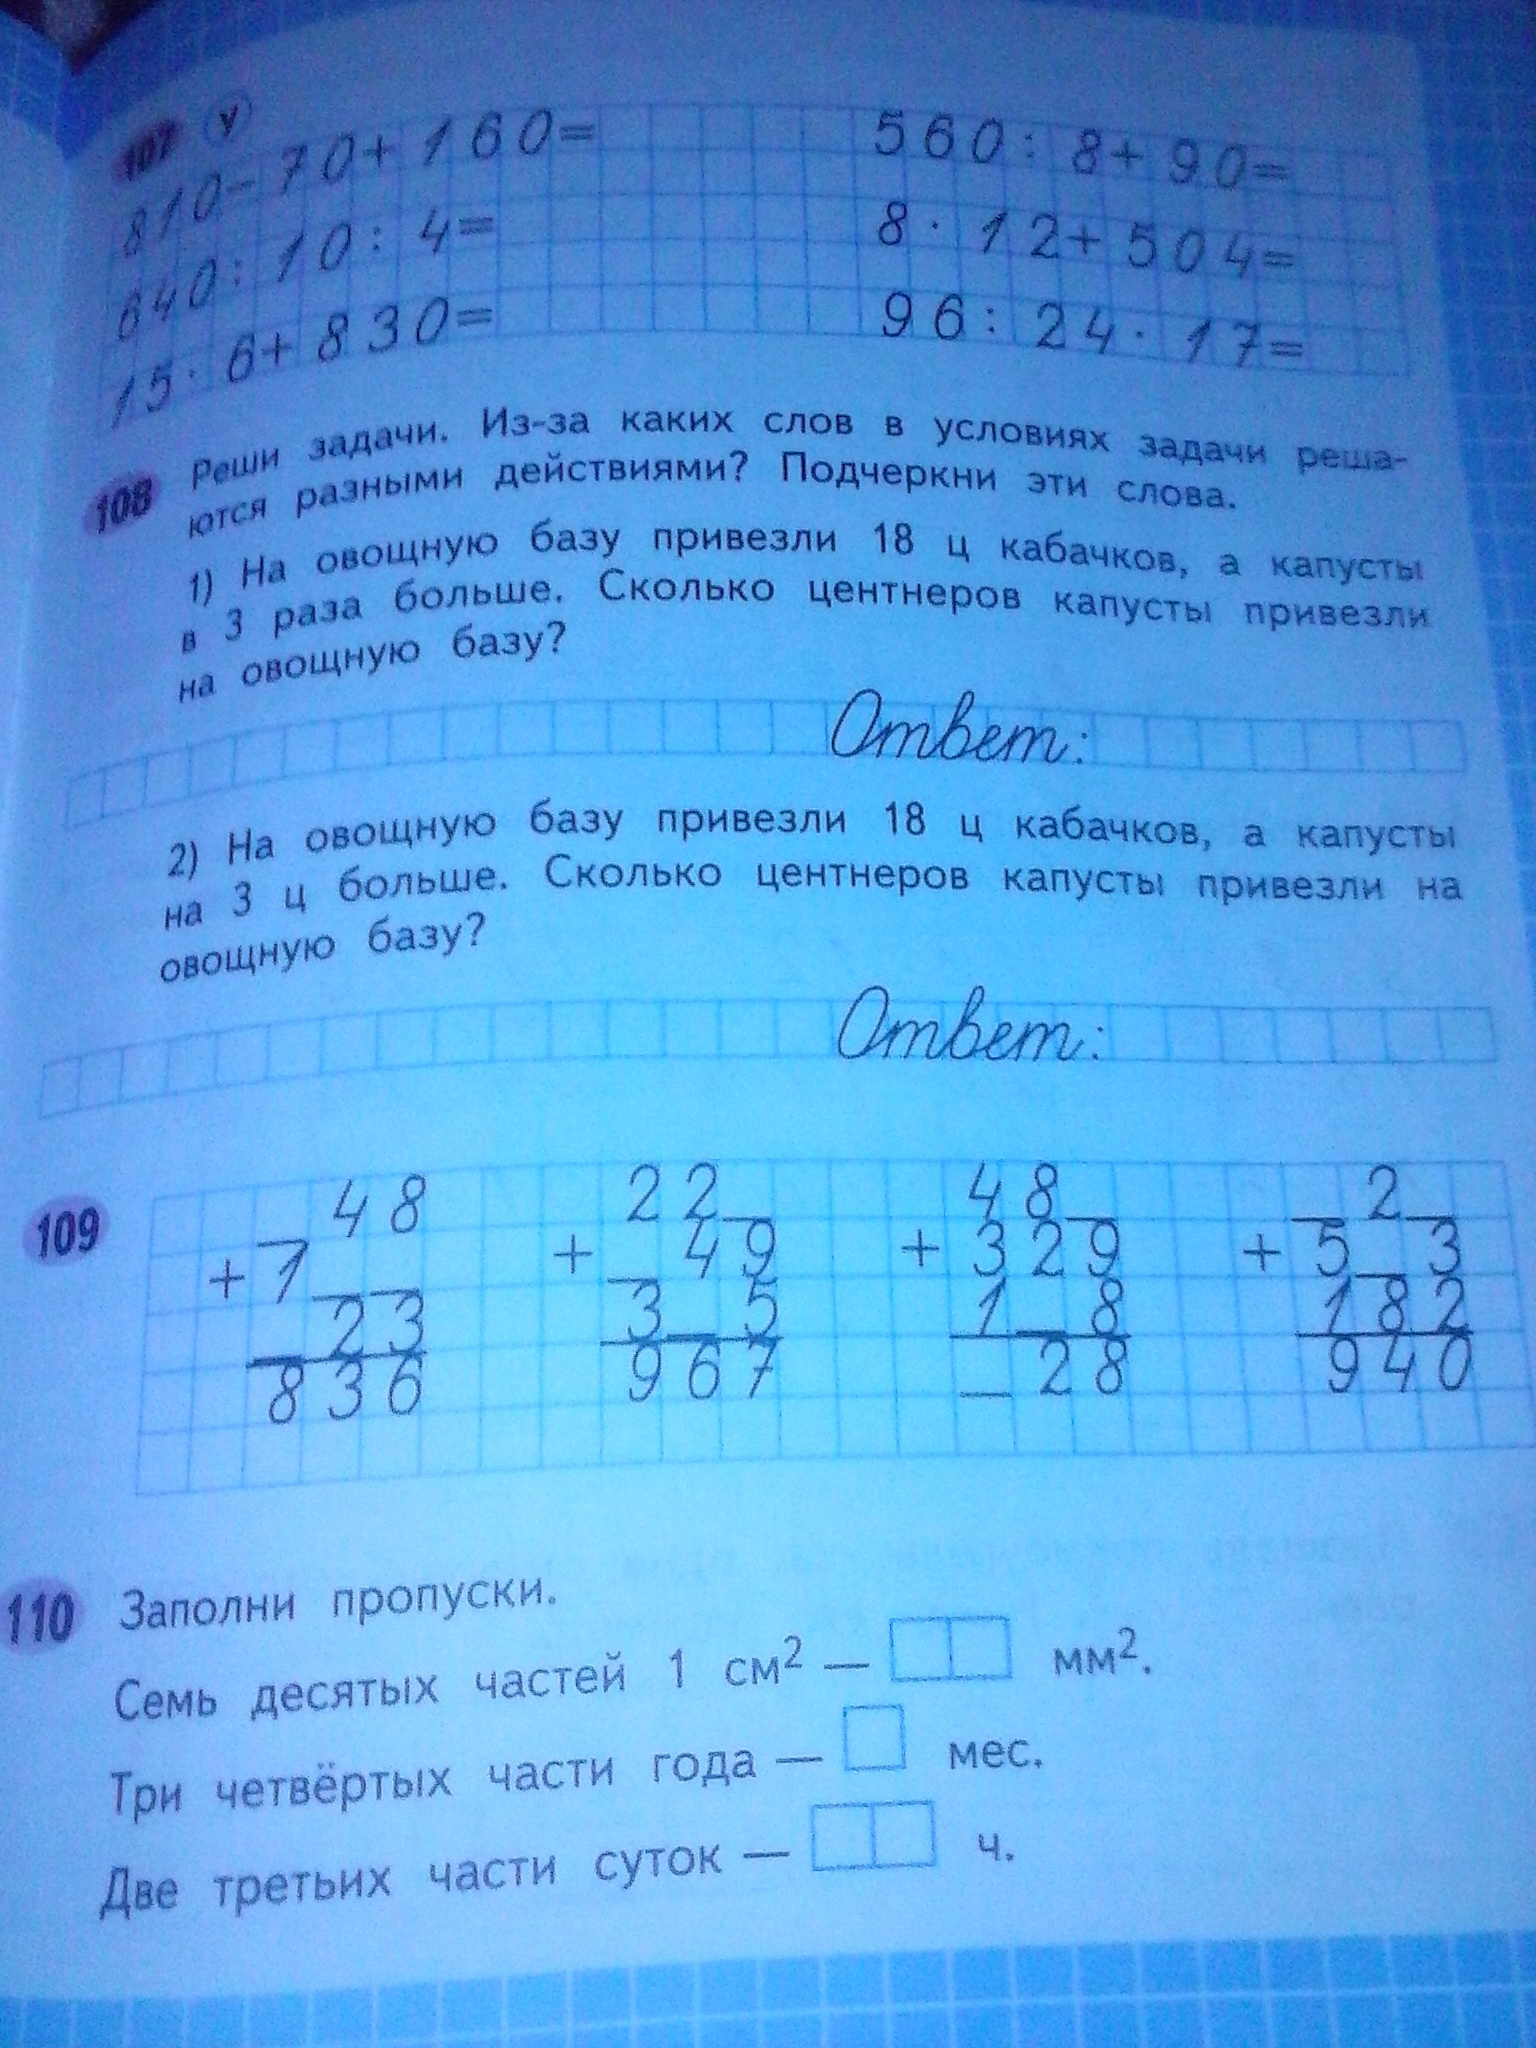 107 У
810-70+160=
560:8+90=
640:10:4=
8·12+504=
15·6+830=
96:24·17=
108 Реши задачи. Из-за каких слов в условиях задачи реша-
ются разными действиями? Подчеркни эти слова.
1) На овощную базу привезли 18 ц кабачков, а капусты
в 3 раза больше. Сколько центнеров капусты привезли
на овощную базу?
Ответ:
2) На овощную базу привезли 18 ц кабачков, а капусты
на 3 ц больше. Сколько центнеров капусты привезли на
овощную базу?
Ответ:
109
48 22_ 48_ _2_
+ 1_ _ + _49 + 329 + 5_3
_23 3_5 1_8 182
836 967 _28 940
110 Заполни пропуски.
Семь десятых частей 1 см² — мм².
Три четвёртых части года — мес.
Две третьих части суток — ч.